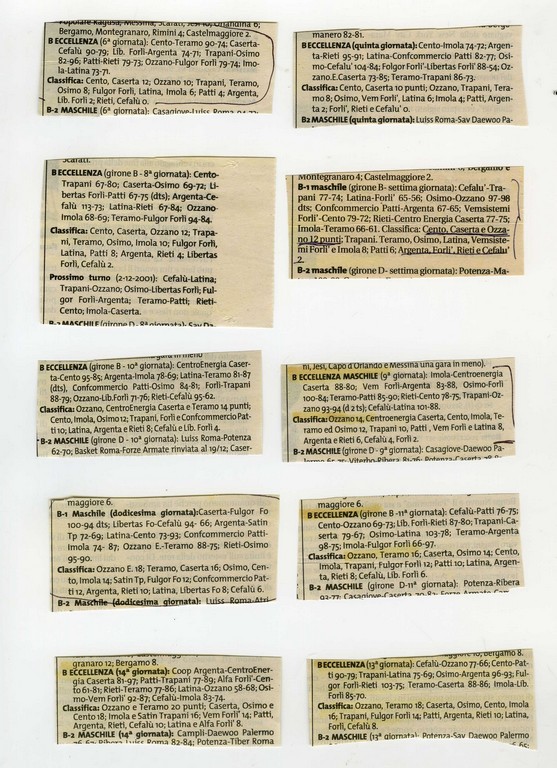 Bergamo, Montegranaro, Rimini 4; Castelmaggiore 2.
B ECCELLENZA (6ª giornata): Cento-Teramo 90-74; Caserta-
Cefalù 90-79; Lib. Forlì-Argenta 74-71; Trapani-Osimo
82-96; Patti-Rieti 79-73; Ozzano-Fulgor Forlì 79-74; Imo-
la-Latina 73-71.
Classifica: Cento, Caserta 12; Ozzano 10; Trapani, Teramo,
Osimo 8; Fulgor Forlì, Latina, Imola 6; Patti 4; Argenta,
Lib. Forlì 2; Rieti, Cefalù 0.
B-2 MASCHILE (6ª giornata): Casagiove-Luiss Roma
manero 82-81.
B ECCELLENZA (quinta giornata): Cento-Imola 74-72; Argen-
ta-Rieti 95-91; Latina-Confcommercio Patti 82-77; Osi-
mo-Cefalu' 104-84; Folgor Forli'-Libertas Forli' 88-54; Oz-
zano.E.Caserta 73-85; Teramo-Trapani 86-73.
Classifica: Cento, Caserta 10 punti; Ozzano, Trapani, Tera-
mo 8; Osimo, Vem Forli', Latina 6; Imola 4; Patti, Argen-
ta 2; Forli', Rieti e Cefalu' 0.
B2 MASCHILE (quinta giornata): Luiss Roma-Sav Daewoo Pa-
Scafati.
B ECCELLENZA (girone B - 8ª giornata): Cento-
Trapani 67-80; Caserta-Osimo 69-72; Li-
bertas Forlì-Patti 67-75 (dts); Argenta-Ce-
falù 113-73; Latina-Rieti 67-84; Ozzano-
Imola 68-69; Teramo-Fulgor Forlì 94-84.
Classifica: Cento, Caserta, Ozzano 12; Trapa-
ni, Teramo, Osimo, Imola 10; Fulgor Forlì,
Latina, Patti 8; Argenta, Rieti 4; Libertas
Forlì, Cefalù 2.
Prossimo turno (2-12-2001): Cefalù-Latina;
Trapani-Ozzano; Osimo-Libertas Forlì; Ful-
gor Forlì-Argenta; Teramo-Patti; Rieti-
Cento; Imola-Caserta.
B-2 MASCHILE (girone D - 8ª giornata): Sav Da-
Montegranaro 4; Castelmaggiore 2.
B-1 maschile (girone B- settima giornata): Cefalu'-Tra-
pani 77-74; Latina-Forli' 65-56; Osimo-Ozzano 97-98
dts; Confcommercio Patti-Argenta 67-65; Vemsistemi
Forli'-Cento 79-72; Rieti-Centro Energia Caserta 77-75;
Imola-Teramo 66-61. Classifica: Cento, Caserta e Ozza-
no 12 punti; Trapani, Teramo, Osimo, Latina, Vemsiste-
mi Forli' e Imola 8; Patti 6; Argenta, Forli', Rieti e Cefalu'
2.
B-2 maschile (girone D- settima giornata): Potenza-Ma-
B ECCELLENZA (girone B - 10ª giornata): CentroEnergia Caser-
ta-Cento 95-85; Argenta-Imola 78-69; Latina-Teramo 81-87
(dts), Confcommercio Patti-Osimo 84-81; Forlì-Trapani
88-79; Ozzano-Lib.Forlì 71-76; Rieti-Cefalù 95-62.
Classifica: Ozzano, CentroEnergia Caserta e Teramo 14 punti;
Cento, Imola, Osimo 12; Trapani, Forlì e Confcommercio Pat-
ti 10; Latina, Argenta e Rieti 8; Cefalù e Lib. Forlì 4.
B-2 MASCHILE (girone D - 10ª giornata): Luiss Roma-Potenza
62-70; Basket Roma-Forze Armate rinviata al 19/12; Caser-
ni, Jesi, Capo d'Orlando e Messina una gara in meno).
B ECCELLENZA MASCHILE (9ª giornata): Imola-Centroenergia
Caserta 88-80; Vem Forlì-Argenta 83-88, Osimo-Forlì
100-84; Teramo-Patti 85-90; Rieti-Cento 78-75, Trapani-Oz-
zano 93-94 (d 2 ts); Cefalù-Latina 101-88.
Classifica: Ozzano 14, Centroenergia Caserta, Cento, Imola, Te-
ramo ed Osimo 12, Trapani 10, Patti , Vem Forlì e Latina 8,
Argenta e Rieti 6, Cefalù 4, Forlì 2.
B-2 MASCHILE (girone D - 9ª giornata): Casagiove-Daewoo Pa-
maggiore 6.
B-1 Maschile (dodicesima giornata):Caserta-Fulgor Fo
100-94 dts; Libertas Fo-Cefalù 94- 66; Argenta-Satin
Tp 72-69; Latina-Cento 73-93; Confcommercio Patti-
Imola 74- 87; Ozzano E.-Teramo 88-75; Rieti-Osimo
95-90.
Classifica: Ozzano E. 18; Teramo, Caserta 16; Osimo, Cen-
to, Imola 14; Satin Tp, Fulgor Fo 12; Confcommercio Pat-
ti 12, Argenta, Rieti 10; Latina, Libertas Fo 8; Cefalù 6.
B-2 Maschile (dodicesima giornata): Luiss Roma-Atri
maggiore 6.
B ECCELLENZA (girone B -11ª giornata): Cefalù-Patti 76-75;
Cento-Ozzano 69-73; Lib. Forlì-Rieti 87-80; Trapani-Ca-
serta 79-67; Osimo-Latina 103-78; Teramo-Argenta
98-75; Imola-Fulgor Forlì 66-97.
Classifica: Ozzano, Teramo 16; Caserta, Osimo 14; Cento,
Imola, Trapani, Fulgor Forlì 12; Patti 10; Latina, Argen-
ta, Rieti 8; Cefalù, Lib. Forlì 6.
B-2 MASCHILE (girone D -11ª giornata): Potenza-Ribera
granaro 12; Bergamo 8.
B ECCELLENZA (14ª giornata): Coop Argenta-CentroEner-
gia Caserta 81-97; Patti-Trapani 77-89; Alfa Forlì'-Cen-
to 61-81; Rieti-Teramo 77-86; Latina-Ozzano 58-68; Osi-
mo-Vem Forlì' 92-87; Cefalù-Imola 83-74.
Classifica: Ozzano e Teramo 20 punti; Caserta, Osimo e
Cento 18; Imola e Satin Trapani 16; Vem Forlì' 14; Patti,
Argenta, Rieti, Cefalù 10; Latina e Alfa Forlì' 8.
B-2 MASCHILE (14ª giornata): Campli-Daewoo Palermo
Roma 82-84; Potenza-Tiber Roma
10, Bergamo 8.
B ECCELLENZA (13ª giornata): Cefalù-Ozzano 77-66; Cento-Pat-
ti 90-79; Trapani-Latina 75-69; Osimo-Argenta 96-93; Ful-
gor Forlì-Rieti 103-75; Teramo-Caserta 88-86; Imola-Lib.
Forlì 85-70.
Classifica: Ozzano, Teramo 18; Caserta, Osimo, Cento, Imola
16; Trapani, Fulgor Forlì 14; Patti, Argenta, Rieti 10; Latina,
Forlì, Cefalù 8.
B-2 MASCHILE (13ª giornata): Potenza-Sav Daewoo Palermo